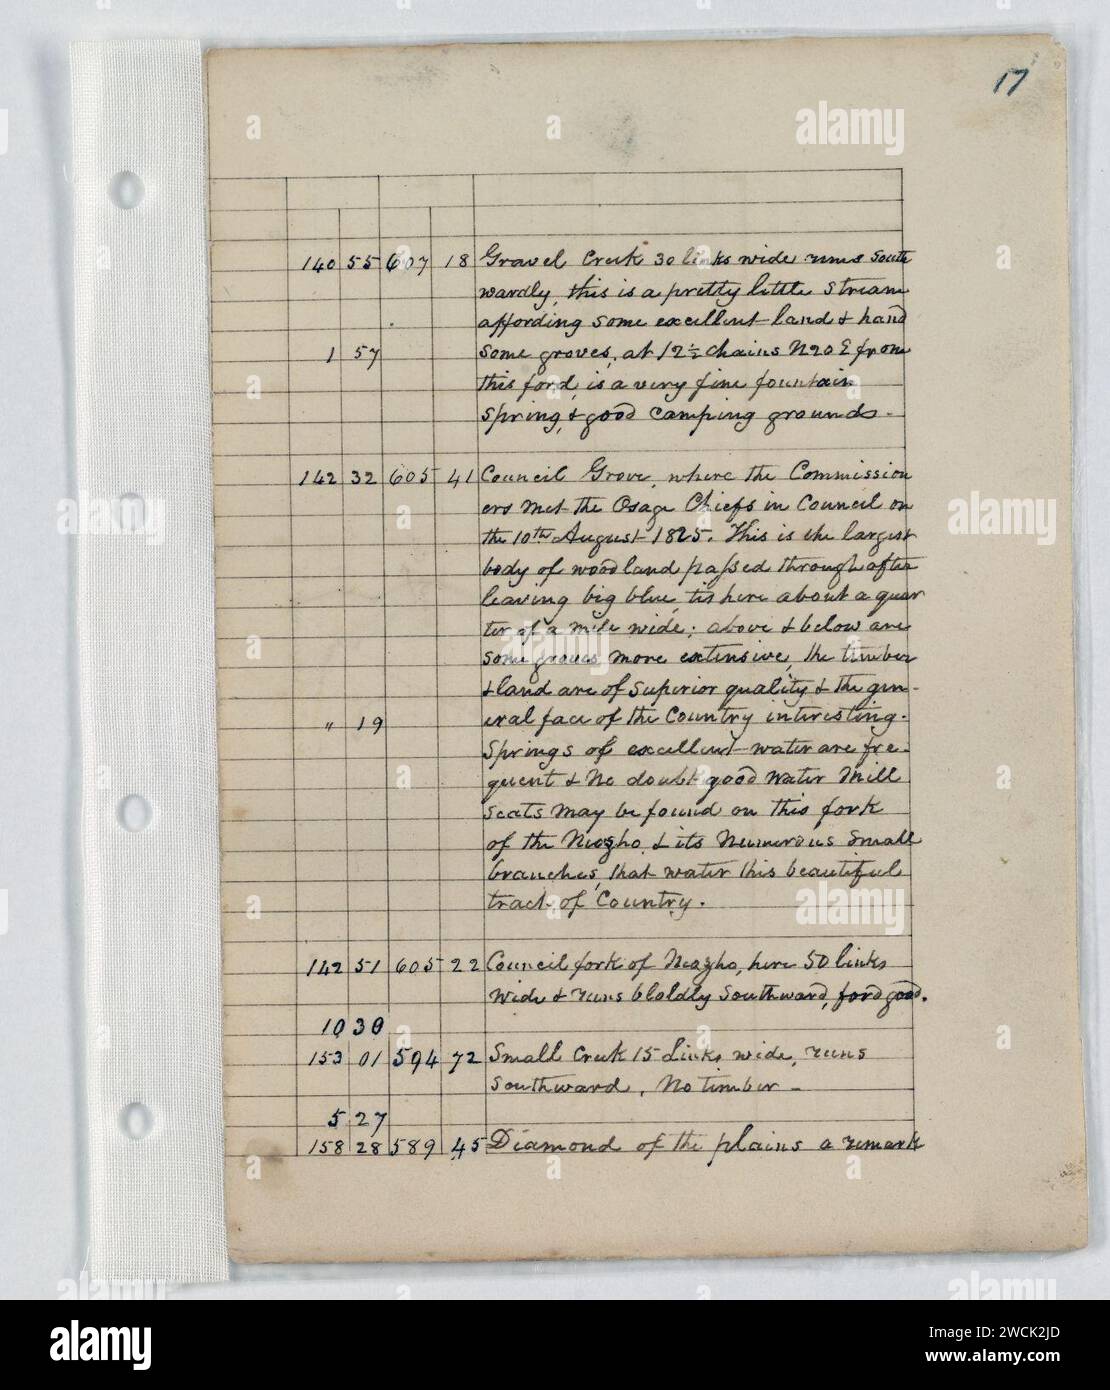 17
140 55 607 18 Gravel Creek 30 links wide runs South
wardly, this is a pretty little stream
affording some excellent land & hand
1 57 some groves, at 12½ chains N20 E from
this ford, is a very fine fountain
spring, & good camping grounds.
142 32 605 41 Council Grove, where the Commission
ers met the Osage Chiefs in Council on
the 10th August 1825. This is the largest
body of wood land passed through after
leaving big blue, tis here about a quar
ter of a mile wide; above & below are
some groves more extensive, the timber
& land are of superior quality & the gen-
" 19 eral face of the Country interesting.
Springs of excellent water are fre-
quent & no doubt good water mill
seats may be found on this fork
of the Neozho & its numerous small
branches, that water this beautiful
tract of Country.
142 51 605 22 Council fork of Neozho, here 50 links
wide & runs boldly Southward, ford good.
10 30
153 01 594 72 Small Creek 15 links wide, runs
Southward, No timber -
5 27
158 28 589 45 Diamond of the plains a remark
alamy
alamy
Image ID: 2WCK2JD
www.alamy.com